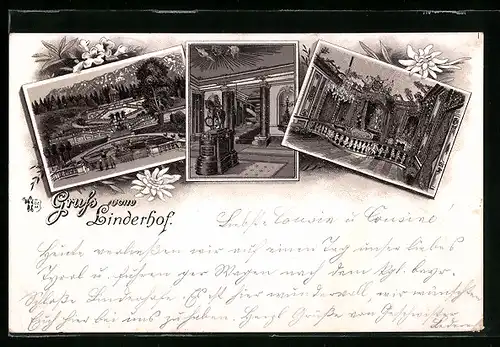 Gruß vom
Linderhof.
Liebste Cousin u. Cousine!
Heute verlassen wir auf einen Tag unser liebes
Tyrol u. fahren per Wagen nach dem kgl. bayr.
Schloße Linderhofe. Es ist hier wundervoll, wir wünschten
Euch hier bei uns zu haben. Herzl. Grüße von Geschwister